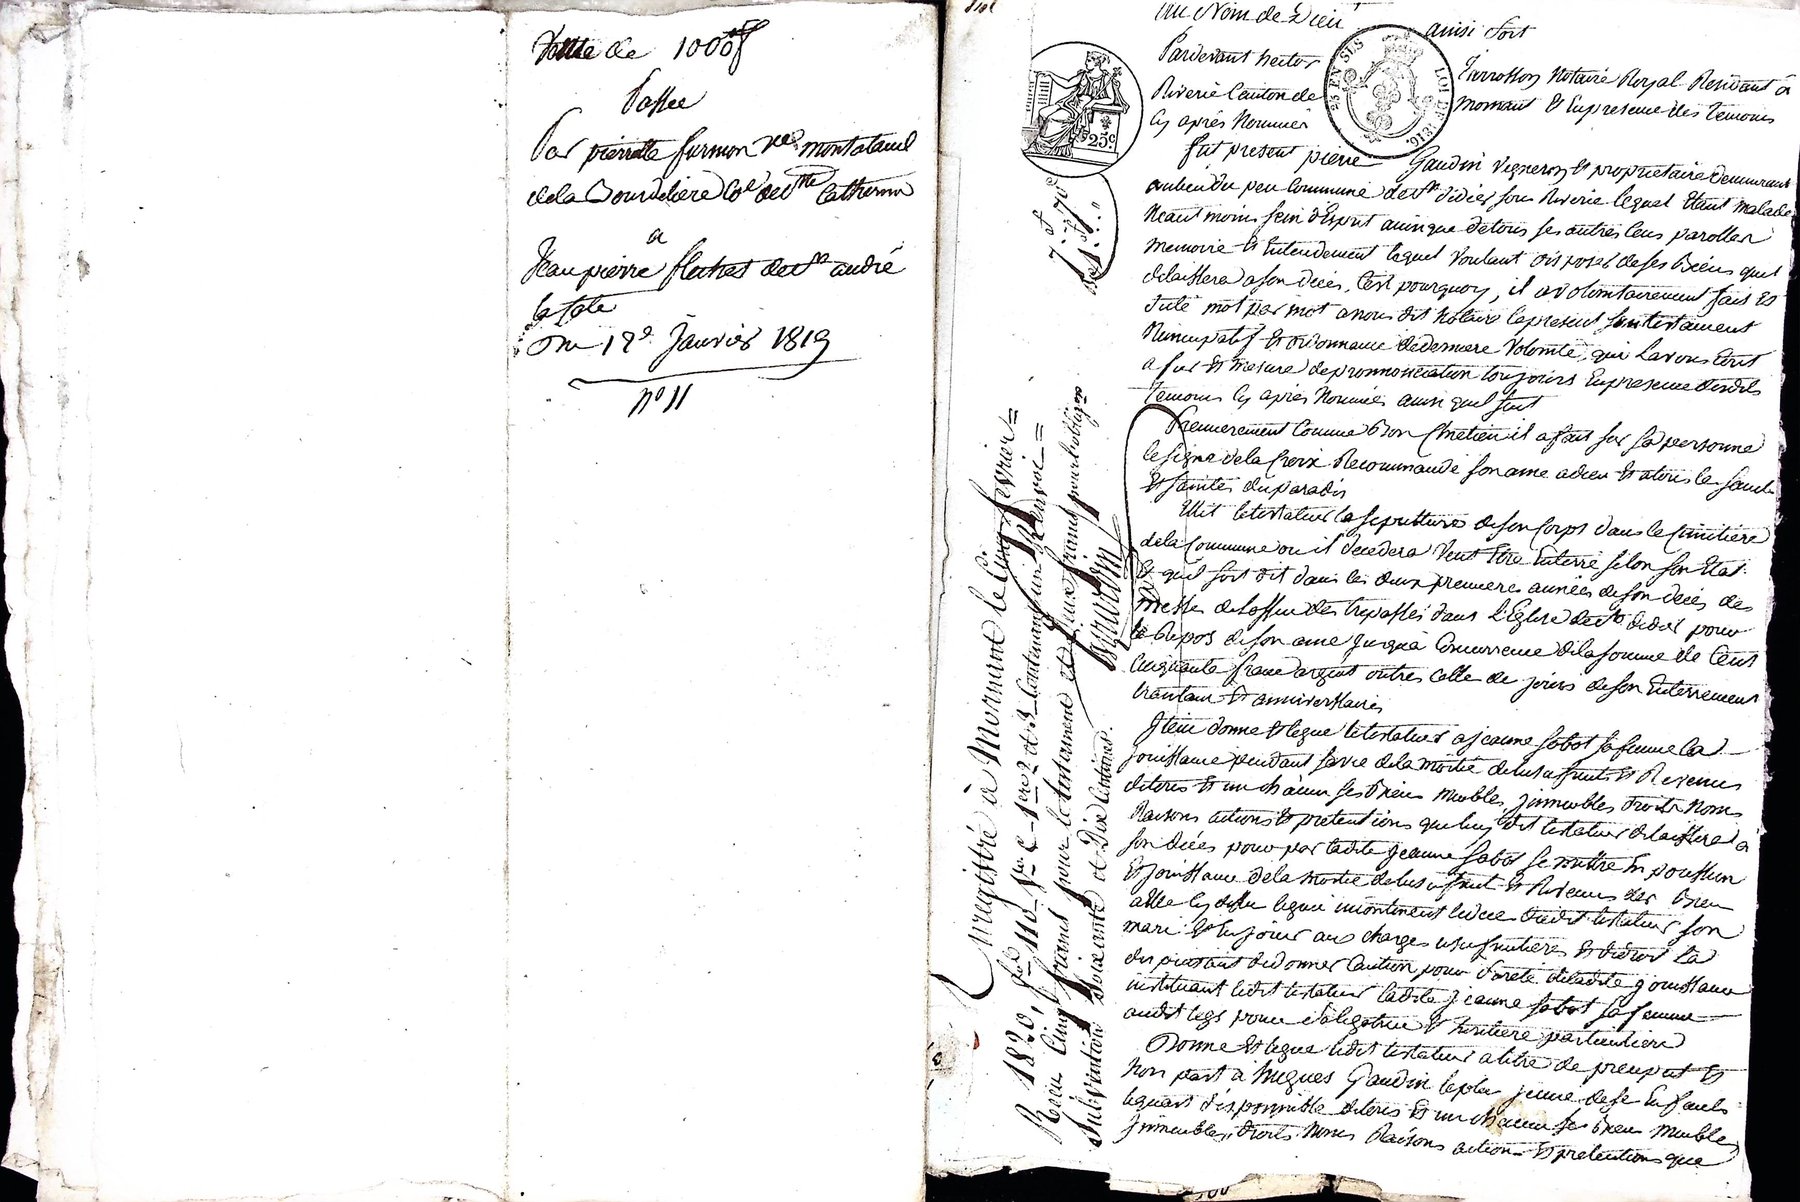 Vente de 1000 f
Passee
Par pierrette furnion ve montataud
de la Dourdeliere Cne de Ste Catherine
a
Jean pierre flechet de st andré
la Cote
Du 17e Janvier 1819
No 11
au Nom de Dieu ainsi soit
Pardevant hector Notaire Royal Residant a
Riverie Canton de mornant Et En presence des temoins
Cy après Nommes
fut present pierre Gaudin vigneron Et proprietaire demeurant
au lieu du peu Commune de st didier sous Riverie lequel Etant malade
Neant moins sein d'Esprit ainsi que de tous ses autres sens parolles
memoire Et Entendement lequel voulant disposer de ses Biens quil
delaissera a son deces, C'est pourquoy, il a volontairement fais Et
dicté mot par mot a nous dit Notaire le present son testament
Nuncupatif Et ordonnance de derniere Volonté, qui L'avons Ecrit
a fur Et mesure de prononciation toujours En presence desdits
temoins Cy après Nommés ainsi quil suit
Premierement Comme Bon Chretien il a fait sur sa personne
le signe de la Croix Recommandé son ame a dieu Et a tous les saints
Et saintes du paradis
Elit le testateur la sepulture de son Corps dans le Cimitiere
de la Commune ou il decedera Veut Etre Enterré selon son Etat
Et quil soit dit dans les deux premiere années de son deces des
messes de loffice des trepassés dans L'Eglise de st didier pour
le Repos de son ame jusqua Concurrence de la somme de Cent
Cinquante franc argent outres celle de jours de son Enterrement
trantain Et anniverssaire
Item donne Et legue le testateur a jeanne sabot sa femme la
jouissance pendant sa vie de la moitié de lusufruits Et Revenus
de tous Et un chacun ses Biens meubles, jmmeubles droits Noms
Raisons actions Et pretentions que luy dit testateur delaissera a
son décés pour par ladite jeanne sabot se mettre En possession
Et jouissance de la moitié de lusufruit Et Revenus des Biens
a Elle Cy dessus legué incontinent le deces dudit testateur son
mari Et En jouir aux charges usufruitieres Et de droit La
dispensant de donner Caution pour sureté de ladite jouissance
instituant ledit testateur ladite jeanne sabot sa femme
audit legs pour sa legatrice Et heritiere particuliere
Donne Et legue ledit testateur a titre de preciput Et
hors part a hugues Gaudin le plus jeune de se Enfants
le quart disponnible de tous Et un chacun ses Biens meubles
jmmeubles, droits Noms Raisons action Et pretentions que
25c
25 EN SUS LOI DE 1816
Enregistré à Mornant le Cinq fevrier
1820, fol 110 Contenant un Renvoi
Recu Cinq francs pour le testament et deux francs pour l'obligation
Subvention soixante et Dix Centimes.